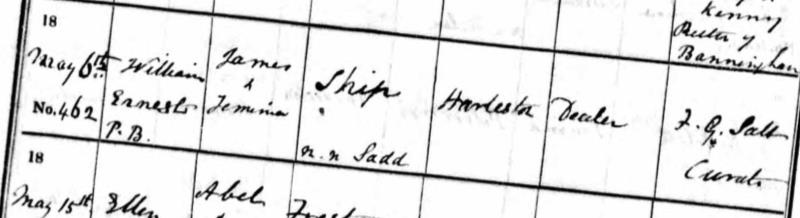 Kenny
Rector of
Banningham
18
May 6th
No. 462
William
Ernest
P.B.
James
&
Jemima
Ship
n.n Sadd
Harleston
Dealer
F. G. Salt
Curate
18
May 15th
Ellen
Abel